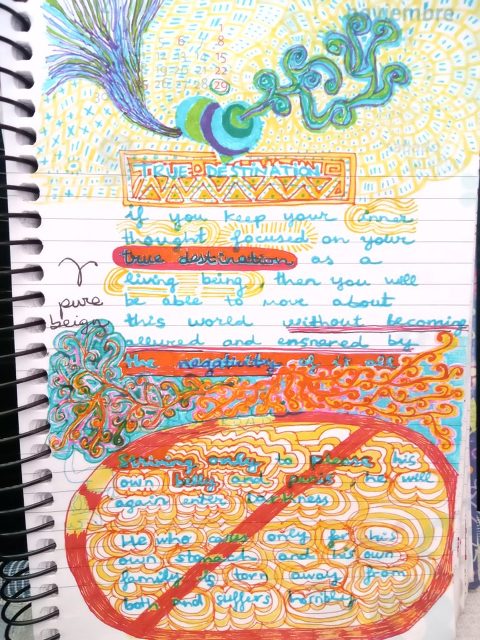 noviembre
6 8
12 13 15
19 20 21 22
26 27 28 29
30
TRUE DESTINATION
if you keep your inner
thought focused on your
true destination as a
living being, then you will
be able to move about
this world without becoming
allured and ensnared by
the negativity of it all
pure
being
Striving only to please his
own belly and purse he will
again enter darkness
He who cares only for his
own stomach and his own
family is torn away from
both and suffers horribly